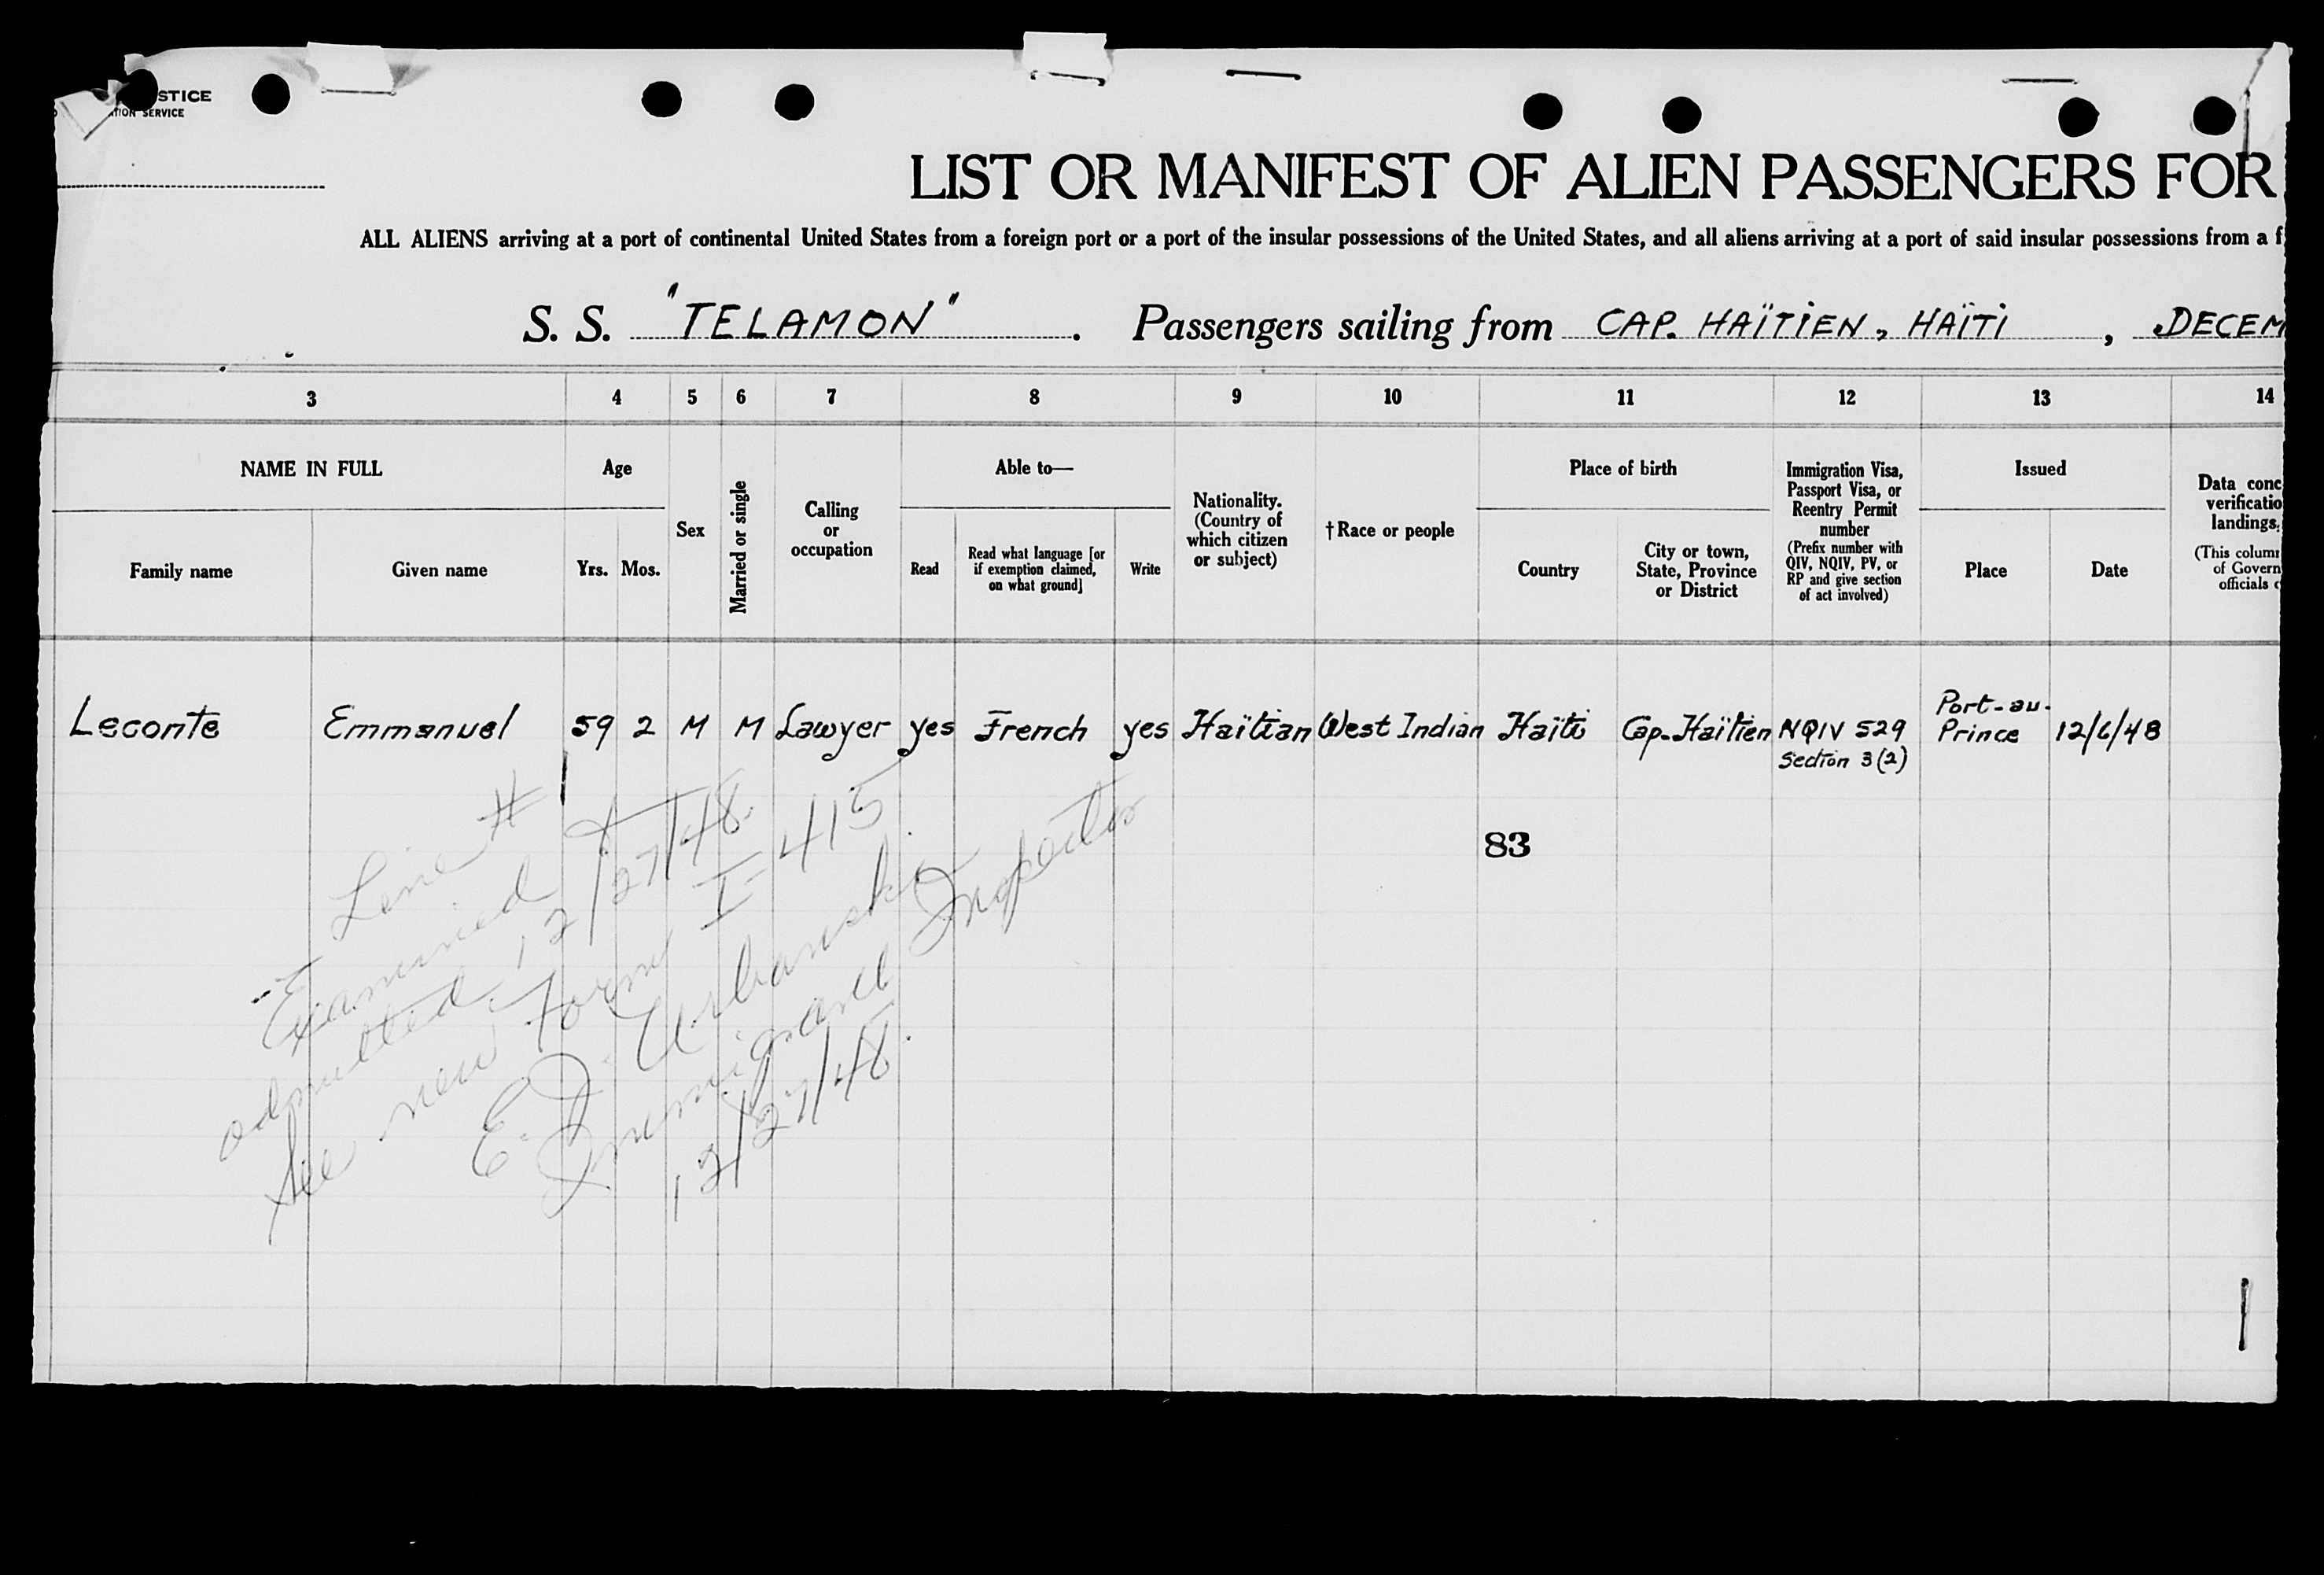 STICE
ATION SERVICE
LIST OR MANIFEST OF ALIEN PASSENGERS FOR
ALL ALIENS arriving at a port of continental United States from a foreign port or a port of the insular possessions of the United States, and all aliens arriving at a port of said insular possessions from a f
S. S. "TELAMON". Passengers sailing from CAP. HAÏTIEN, HAÏTI, DECEM
3 4 5 6 7 8 9 10 11 12 13 14
NAME IN FULL
Family name
Given name
Age
Yrs. Mos.
Sex
Married or single
Calling
or
occupation
Able to—
Read
Read what language [or
if exemption claimed,
on what ground]
Write
Nationality.
(Country of
which citizen
or subject)
†Race or people
Place of birth
Country
City or town,
State, Province
or District
Immigration Visa,
Passport Visa, or
Reentry Permit
number
(Prefix number with
QIV, NQIV, PV, or
RP and give section
of act involved)
Issued
Place
Date
Data conc
verificatio
landings,
(This colum
of Govern
officials
Leconte Emmanuel 59 2 M M Lawyer yes French yes Haïtian West Indian Haïti Cap-Haïtien NQIV 529 Port-au-Prince 12/6/48
Section 3(2)
83
Line #
Examined &
admitted 12/27/48.
See new Form I-415
E. J. Urbanski
Immigrant Inspector
12/27/48.